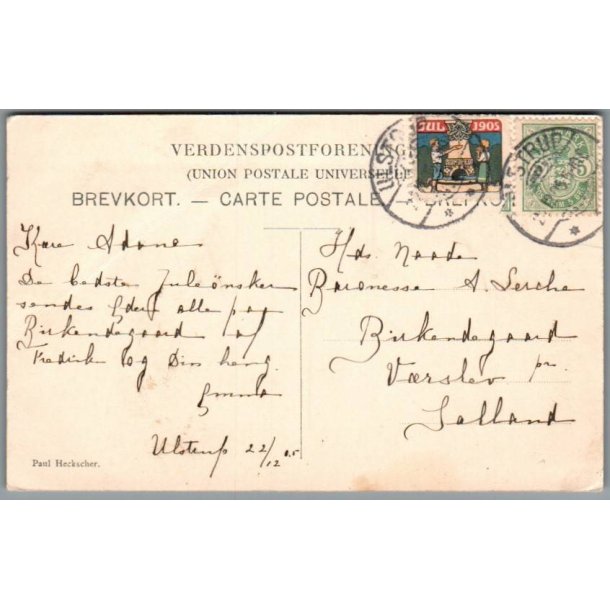 VERDENSPOSTFORENING
(UNION POSTALE UNIVERSELLE
BREVKORT. — CARTE POSTALE
JUL 1905
ULSTRUP
ULSTRUP
5
Kære
De bedste Juleönsker
sendes Eder alle paa
Birkendegaard af
Fredrik og Din heng.
Emma
Ulstrup 22/12 05
Hds. Naade
Baronesse A. Lerche
Birkendegaard
Værslev pr.
Sælland
Paul Heckscher.